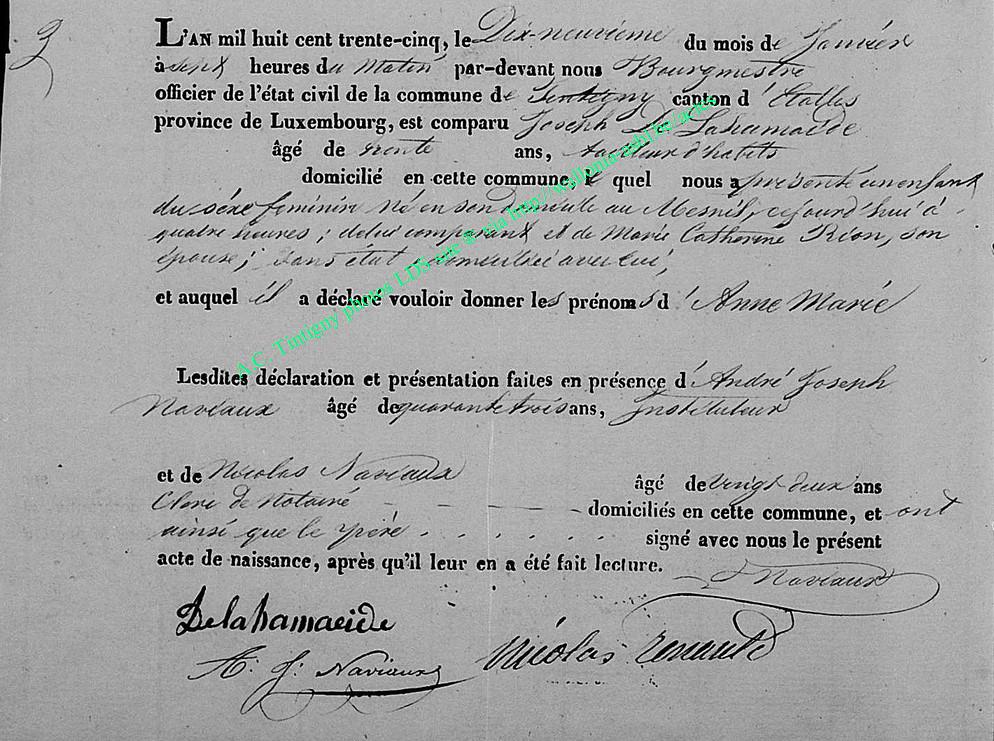 3
L'AN mil huit cent trente-cinq, le Dix-neuvième du mois de Janvier
à sept heures du Matin par-devant nous Bourgmestre
officier de l'état civil de la commune de Tintigny canton d'Etalles
province de Luxembourg, est comparu Joseph De Lahamaide
âgé de trente ans, tailleur d'habits
domicilié en cette commune, quel nous a présenté un enfant
du séxe feminin né en son domicile au Mesnil, cejourd'hui à
quatre heures; delui comparant et de Marie Catherine Rion, son
épouse; Sans état domiciliée avec lui,
et auquel il a déclaré vouloir donner les prénoms d'Anne Marie
Lesdites déclaration et présentation faites en présence d'André Joseph
Naviaux âgé de quarante trois ans, Instituteur
et de Nicolas Naviaux âgé de vingt deux ans
Clerc de Notaire domiciliés en cette commune, et ont
ainsi que le père . . . . . . signé avec nous le présent
acte de naissance, après qu'il leur en a été fait lecture.
Naviaux
Delahamaide
A. J. Naviaux Nicolas
A.C. Tintigny photos LDS site & via http://wallonia-asbl.be/actes